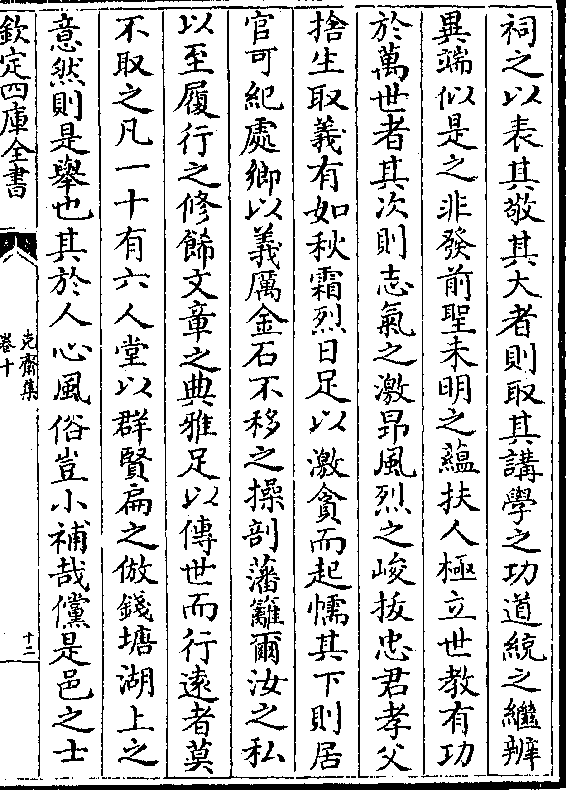 祠之以表其敬其大者則取其講學之功道統之繼辨
異端似是之非發前聖未明之蘊扶人極立世教有功
於萬世者其次則志氣之激昂風烈之峻拔忠君孝父
捨生取義有如秋霜烈日足以激貪而起懦其下則居
官可紀處鄉以義厲金石不移之操剖藩籬爾汝之私
以至履行之修飾文章之典雅足以傳世而行遠者莫
不取之凡一十有六人堂以群賢扁之倣錢塘湖上之
意然則是舉也其於人心風俗豈小補哉儻是邑之士
欽定四庫全書
克齋集
卷十
十二